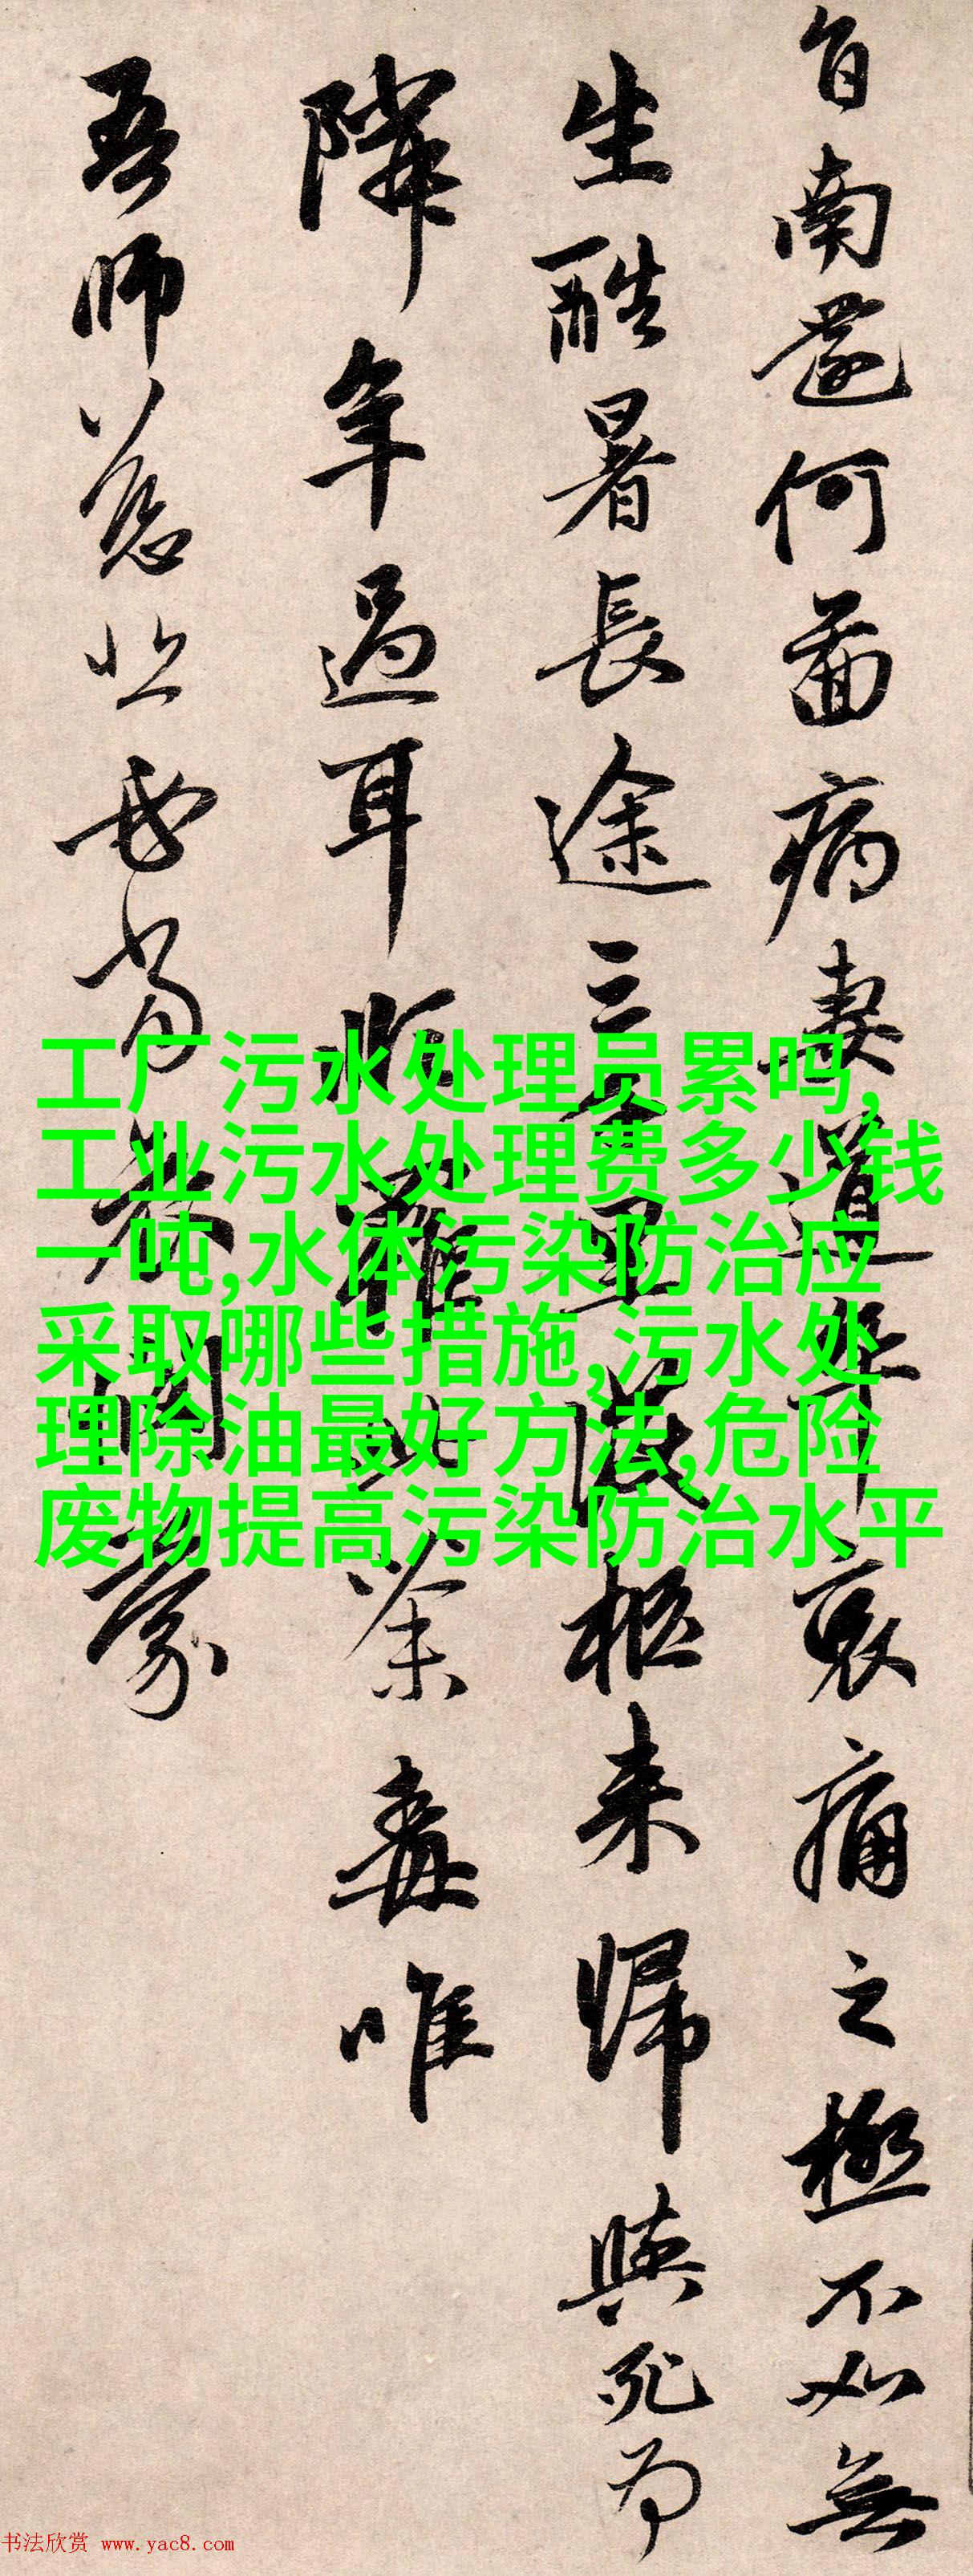 自南還何啚病妻道卒哀痛之極不如無
生酷暑長途三千里護柩来歸與死為
隣年過耳順罹此荼毒唯
吾師慈悲當憫
工厂污水处理员累吗,
工业污水处理费多少钱
一吨,水体污染防治应
采取哪些措施,污水处
理除油最好方法,危险
废物提高污染防治水平
书法欣赏 www.yac8.com